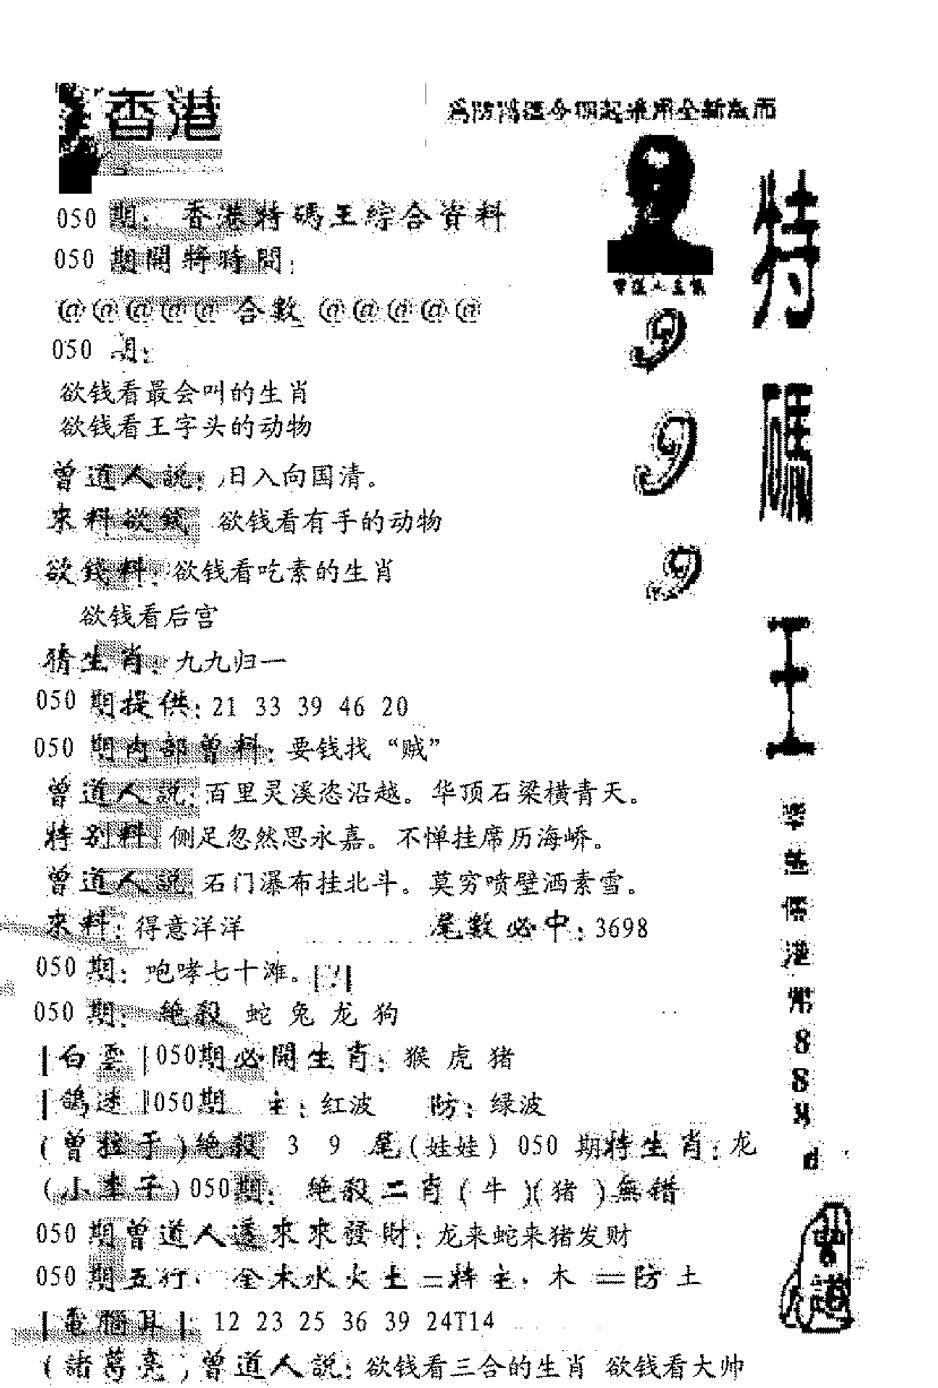 香港
為防 今期起 用全新 面
050 期: 香港特碼王綜合資料
050 期開將時間:
@@@@@ 合數 @@@@@
050 期:
欲钱看最会叫的生肖
欲钱看王字头的动物
曾道人説: 日入向国清。
來料欲錢 欲钱看有手的动物
欲錢料: 欲钱看吃素的生肖
欲钱看后宫
猜生肖: 九九归一
050 期提供: 21 33 39 46 20
050 期内部曾料: 要钱找“贼”
曾道人説: 百里灵溪恣沿越。华顶石梁横青天。
特别料: 侧足忽然思永嘉。不惮挂席历海峤。
曾道人説: 石门瀑布挂北斗。莫穷喷壁洒素雪。
來料: 得意洋洋 尾數必中: 3698
050 期: 咆哮七十滩。
050 期: 絶殺 蛇 兔 龙 狗
|白雲|050期必開生肖: 猴 虎 猪
050期 主: 红波 防: 绿波
絶殺 3 9 尾(娃娃) 050 期特生肖: 龙
050期: 絶殺二肖(牛)(猪)無錯
050 期曾道人送來來發財: 龙来蛇来猪发财
050 期五行: 金木水火土=特主: 木 =防 土
|電腦 |: 12 23 25 36 39 24T14
(諸葛亮)曾道人説: 欲钱看三合的生肖 欲钱看大帅
9
9
9
特碼王
港幣888
曾道人